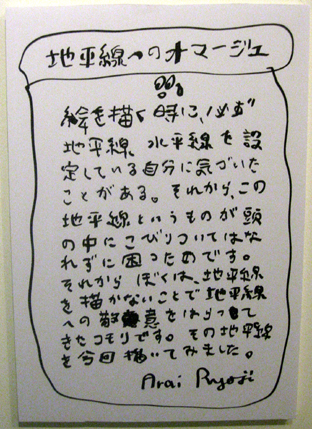 地平線へのオマージュ
絵を描く時に、必ず
地平線、水平線を設
定している自分に気づいた
ことがある。それから、この
地平線というものが頭
の中にこびりついてはな
れずに困ったのです。
それからぼくは、地平線
を描かないことで地平線
への敬意をはらって
きたつモリです。その地平線
を今回描いてみました。
Arai Ryoji